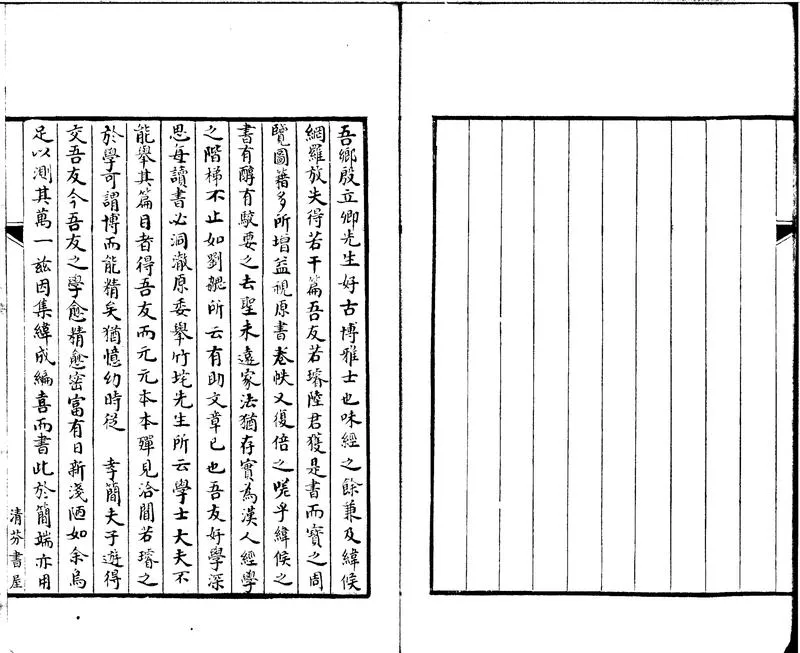 吾鄉殷立卿先生好古博雅士也味經之餘兼及緯候
網羅放失得若干篇吾友若璿陸君獲是書而寶之周
覽圖籍多所增益視原書卷帙又復倍之嗟乎緯候之
書有醇有駁要之去聖未遠家法猶存實為漢人經學
之階梯不止如劉勰所云有助文章已也吾友好學深
思每讀書必洞澈原委舉竹垞先生所云學士大夫不
能舉其篇目者得吾友而元元本本殫見洽聞若璿之
於學可謂博而能精矣猶憶幼時從 李簡夫子遊得
交吾友今吾友之學愈精愈密富有日新淺陋如余烏
足以測其萬一茲因集緯成編喜而書此於簡端亦用
清芬書屋